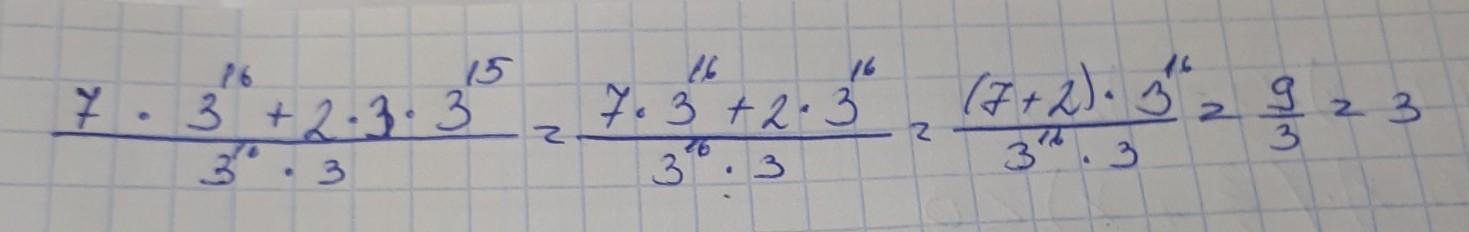 (7 · 3^16 + 2 · 3 · 3^15) / (3^16 · 3) = (7 · 3^16 + 2 · 3^16) / (3^16 · 3) = ((7 + 2) · 3^16) / (3^16 · 3) = 9/3 = 3